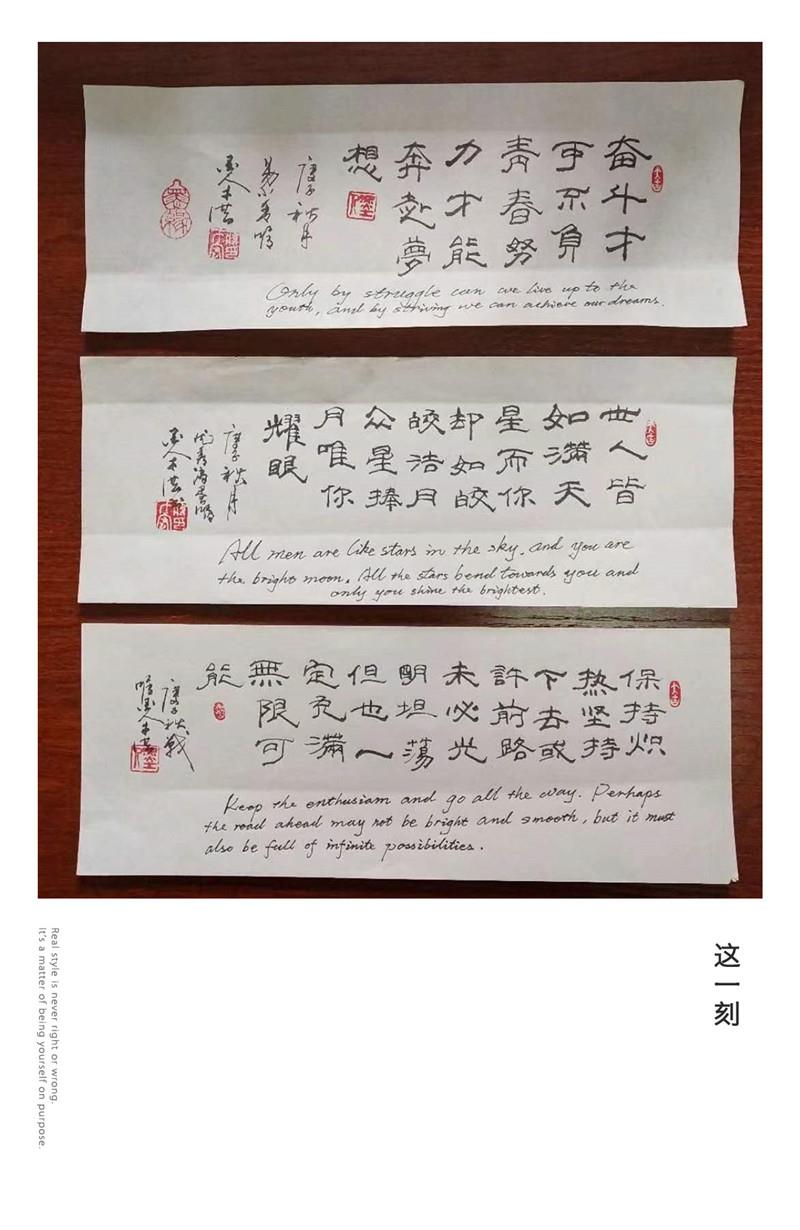 大吉
奋斗才
可不负
青春努
力才能
奔赴夢
想
庚子秋月
墨人木洪
Only by struggle can we live up to the
youth, and by striving we can achieve our dreams.
大吉
世人皆
如满天
星而你
却如皎
皎洁月
众星捧
月唯你
耀眼
庚子秋月
墨人木洪
All men are like stars in the sky, and you are
the bright moon. All the stars bend towards you and
only you shine the brightest.
大吉
保持炽
热坚持
下去或
許前路
未必光
明坦蕩
但也一
定充滿
無限可
能
庚子秋
Keep the enthusiasm and go all the way. Perhaps
the road ahead may not be bright and smooth, but it must
also be full of infinite possibilities.
这一刻
Real style is never right or wrong.
it's a matter of being yourself on purpose.